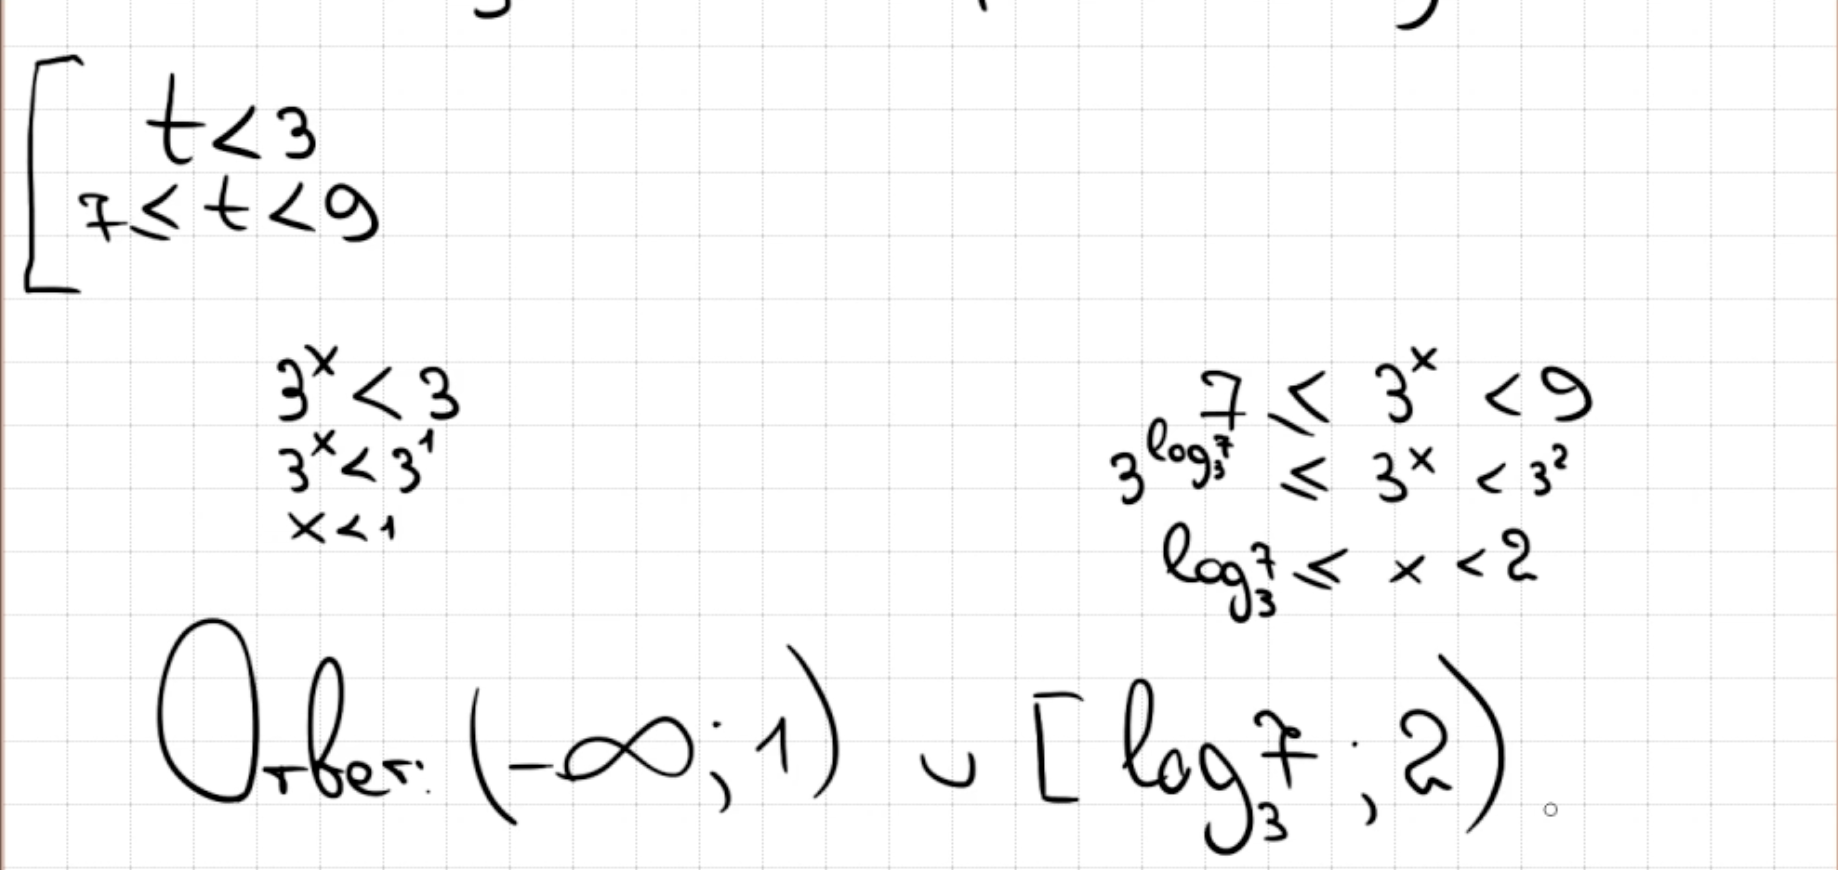 t < 3
7 ≤ t < 9
3^x < 3
3^x < 3^1
x < 1
7 ≤ 3^x < 9
3^{log_3 7} ≤ 3^x < 3^2
log_3 7 ≤ x < 2
Ответ: (-∞; 1) ∪ [log_3 7; 2).